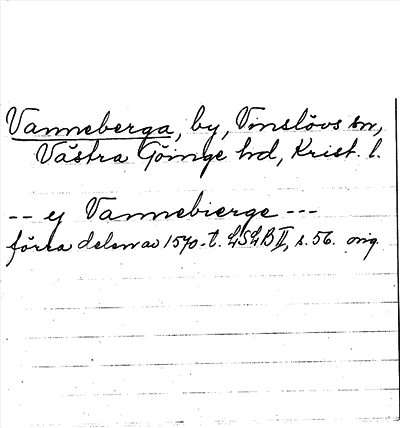 Vanneberga, by, Vinslövs sn,
Västra Göinge hd, Krist. l.
-- ej Vannebierge ---
förra delen av 1570-t. LSLB II, s. 56. orig